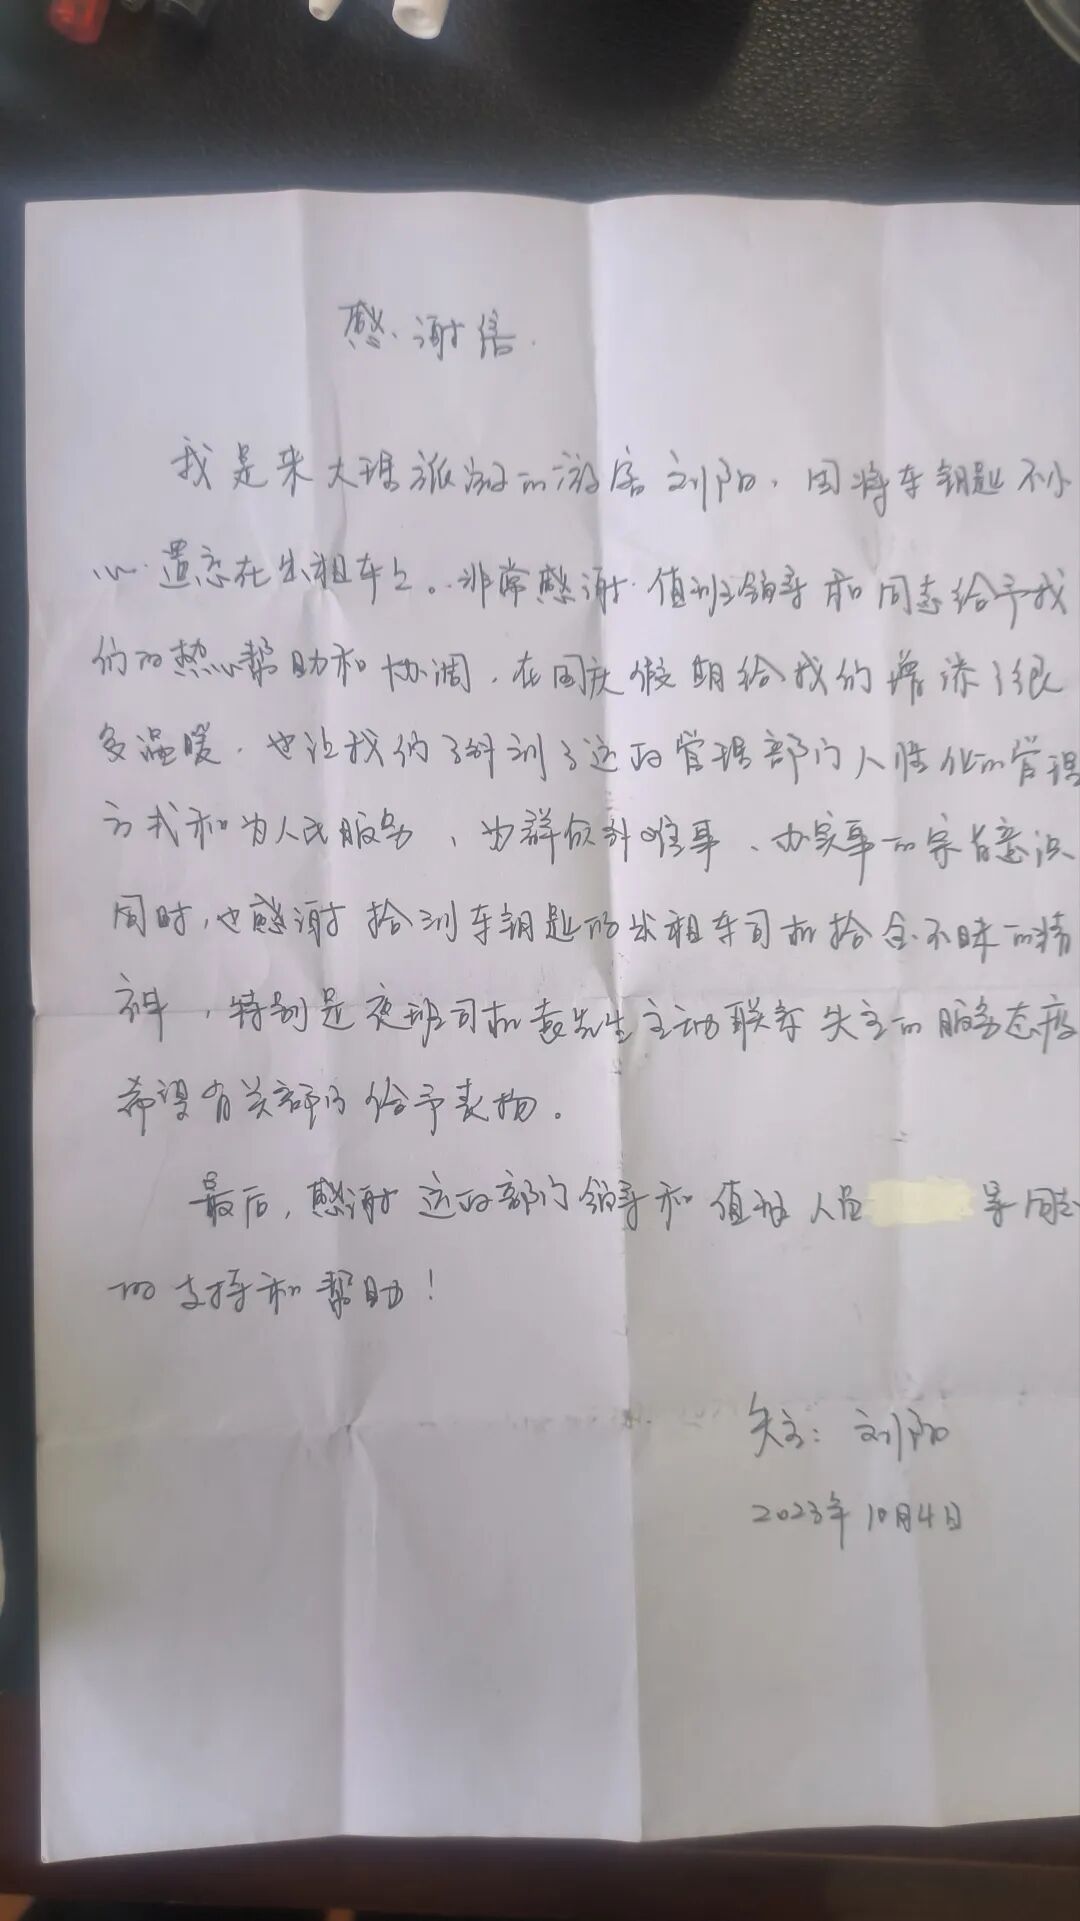 感谢信
我是来大理旅游的游客刘阳，因将车钥匙不小
心遗忘在出租车上。非常感谢值班领导和同志给予我
们的热心帮助和协调，在国庆假期给我们增添了很
多温暖，也让我们了解到了运政管理部门人性化的管理
方式和为人民服务、为群众办难事、办实事的宗旨意识
同时，也感谢拾到车钥匙的出租车司机拾金不昧的精
神，特别是夜班司机袁先生主动联系失主的服务态度
希望有关部门给予表扬。
最后，感谢运政部门领导和值班人员 等同志
的支持和帮助！
失主：刘阳
2023年10月4日